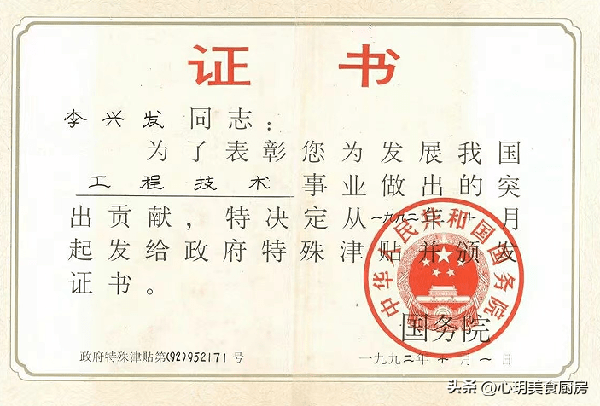 证书
李兴发 同志：
为了表彰您为发展我国
工程技术 事业做出的突
出贡献，特决定从一九九二年 月
起发给政府特殊津贴并颁发
证书。
中华人民共和国国务院
国务院
政府特殊津贴第(92)952171号
一九九二年十月一日
头条 @心玥美食厨房